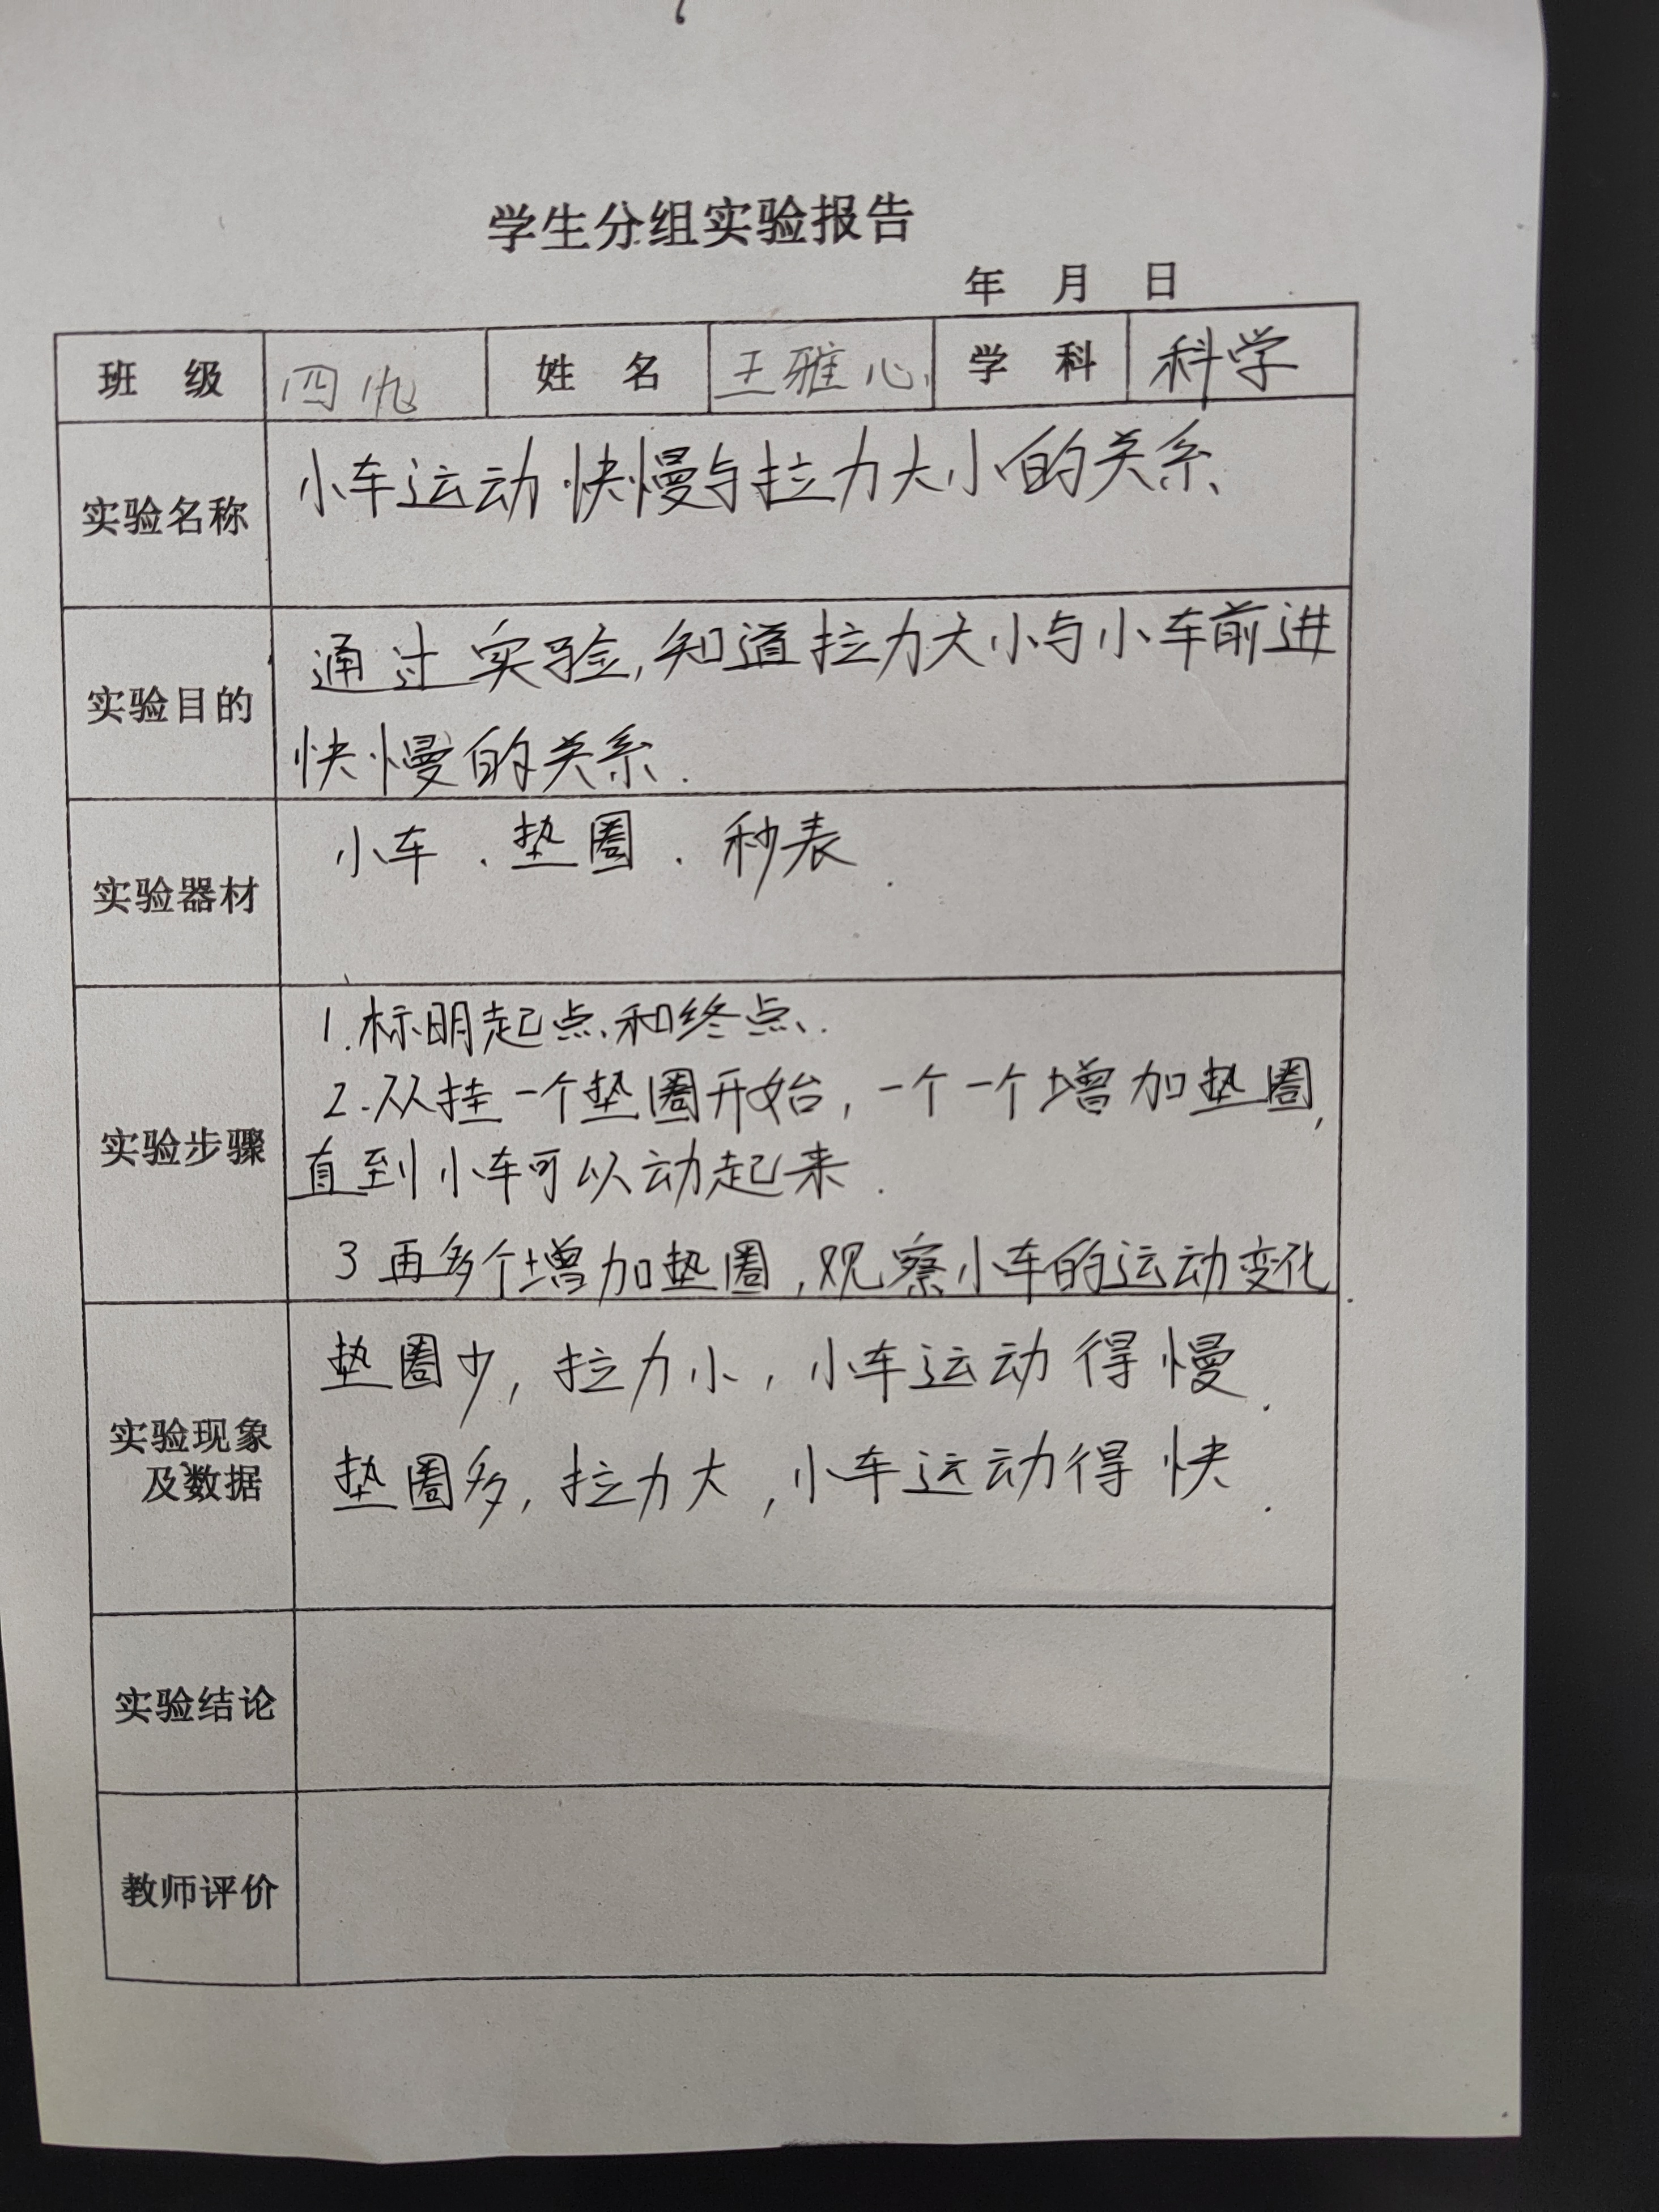 学生分组实验报告
年 月 日
班 级 四 姓 名 王雅心 学 科 科学
实验名称 小车运动快慢与拉力大小的关系
实验目的 通过实验,知道拉力大小与小车前进
快慢的关系.
实验器材 小车、垫圈、秒表
实验步骤
1.标明起点和终点.
2.从挂一个垫圈开始,一个一个增加垫圈,
直到小车可以动起来.
3 再多个增加垫圈,观察小车的运动变化.
实验现象
及数据
垫圈少,拉力小,小车运动得慢.
垫圈多,拉力大,小车运动得快.
实验结论
教师评价